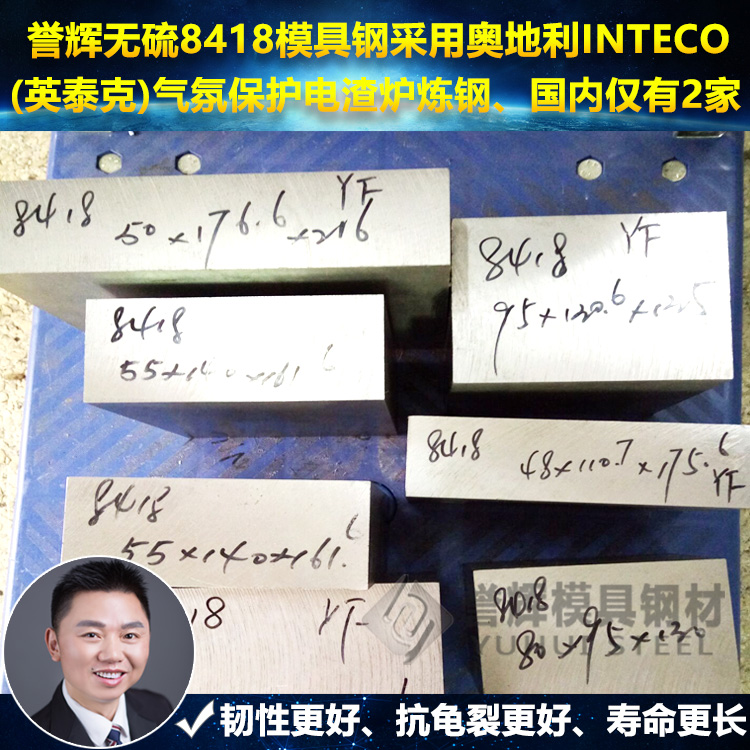 誉辉无硫8418模具钢采用奥地利INTECO
(英泰克)气氛保护电渣炉炼钢、国内仅有2家
8418
YF
50×176.6
×216
8418
YF
95×120.6×122.5
8418
55×140×161.6
8418
48×110.7×175.6
YF
8418
55×140×161.6
18
YF
誉辉模具钢材
YUHUI STEEL
80×95×120
✓韧性更好、抗龟裂更好、寿命更长